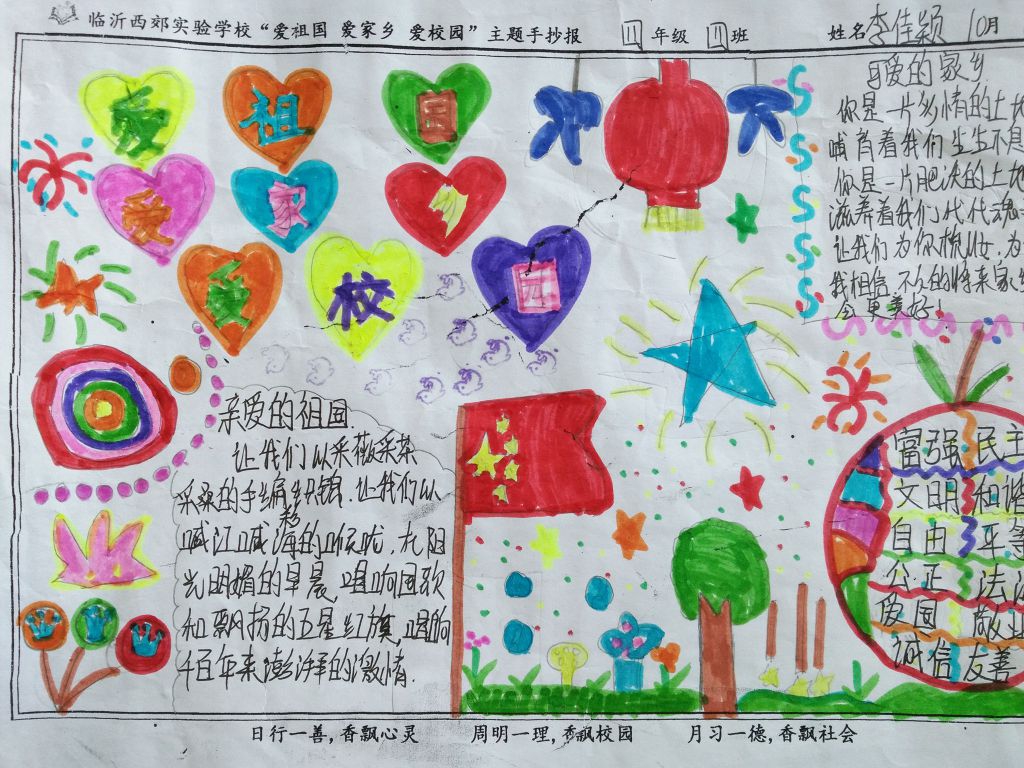 临沂西郊实验学校“爱祖国 爱家乡 爱校园”主题手抄报 四年级 四班 姓名 李佳颖 10月
爱 祖 国
爱 家
爱 校 园
可爱的家乡
你是一片多情的土地
哺育着我们生生不息
你是一片肥沃的土地
滋养着我们代代
让我们为你
我相信,不久的将来家
会更美好!
亲爱的祖国
让我们以采薇采茶
采桑的手编织锦,让我们以
喊江喊海的喉咙,在阳
光明媚的早晨,唱响国歌
和飘扬的五星红旗,唱响
千百年来澎湃的激情.
富强 民主
文明 和谐
自由 平等
公正 法治
爱国 敬业
诚信 友善
日行一善,香飘心灵 周明一理,香飘校园 月习一德,香飘社会